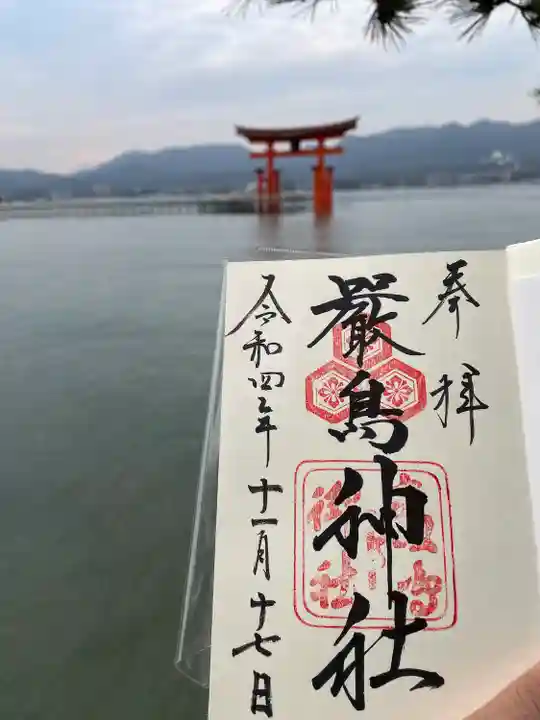 奉拝
嚴島神社
令和四年十一月十七日